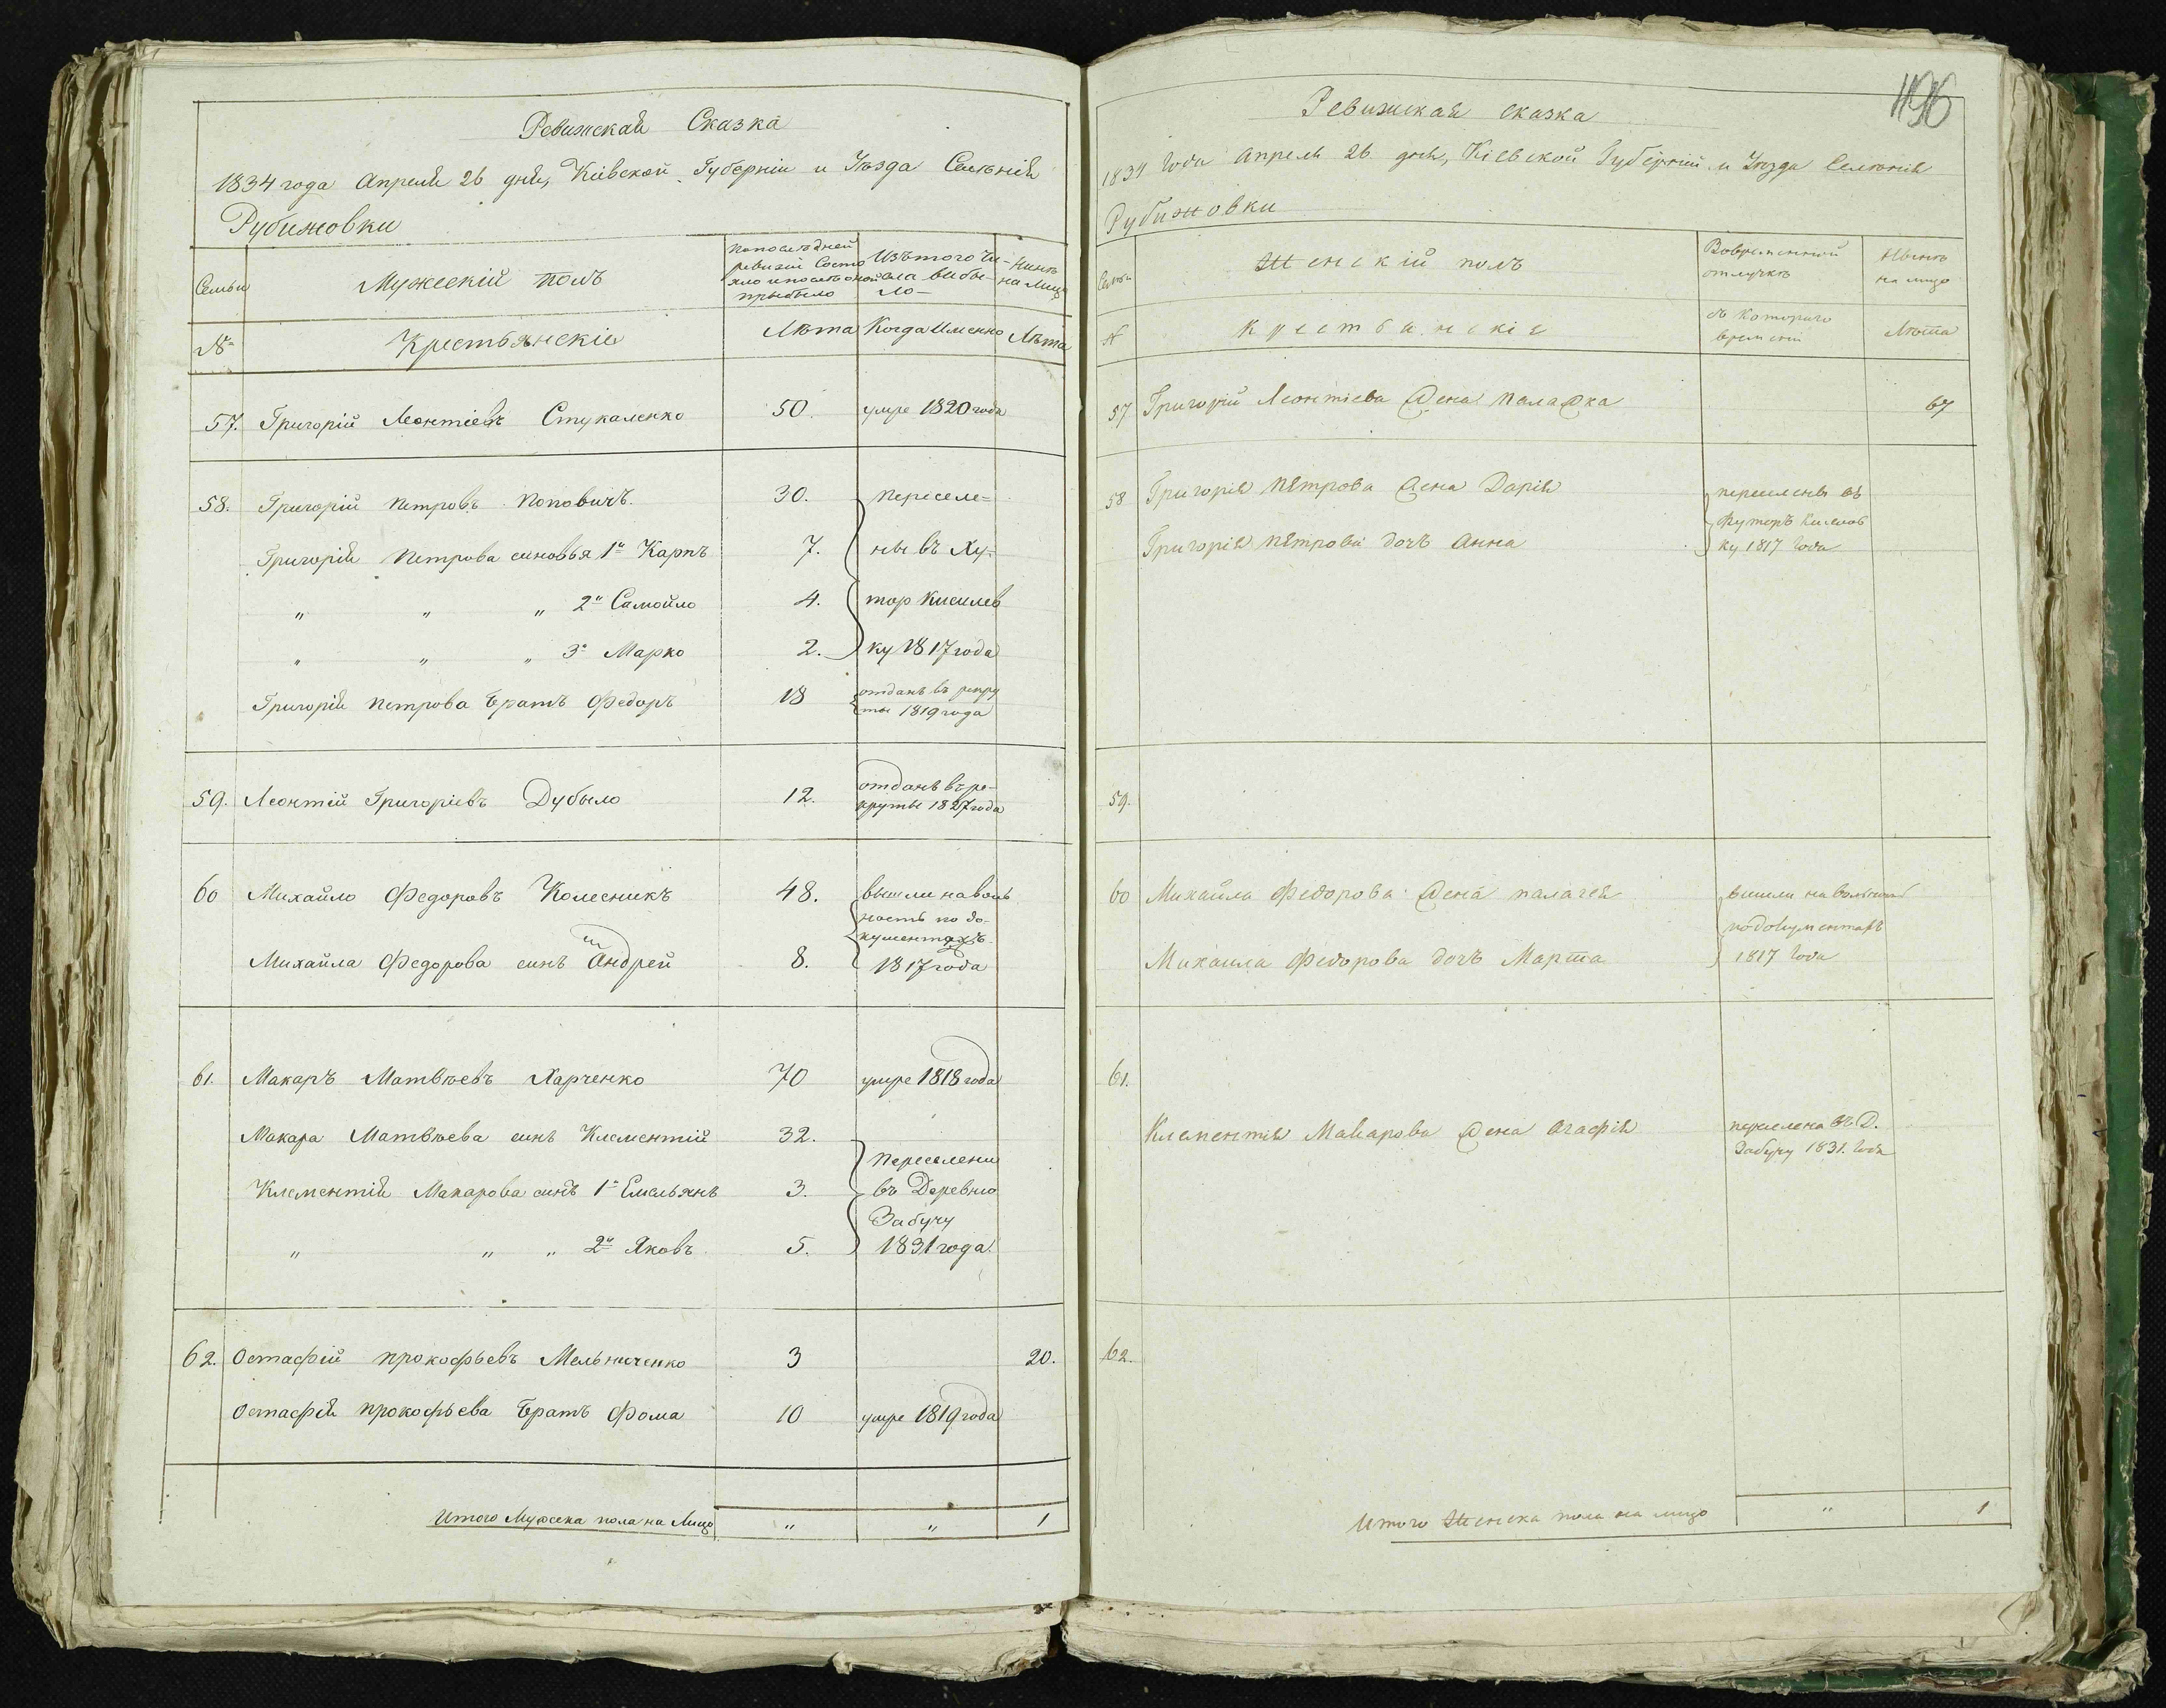 Ревижская Сказка
1834 года Апреля 26 дня, Кіевской Губерніи и Уѣзда Селенія
Рубижовки
Семьи
Мужескій полъ
По последней ревизіи состояло и после оной прыбыло
Изъ того числа выбыло
Нынѣ на лицо
№
Крестьянскіе
Лѣта
Когда Именно
Лѣта
57. Григорій Леонтіевъ Стукаленко 50. умре 1820 года
58. Григорій Петровъ Поповичъ. 30. переселе=
Григорія Петрова синовья 1й Карпъ 7. ны въ Ху=
" " " 2й Самойло 4. тор Кисилев
" " " 3й Марко 2. ку 1817 года
Григорія Петрова Братъ Федоръ 18 отданъ въ рекру
ты 1819 года
59. Леонтій Григоріевъ Дубыло 12. отданъ въ ре-
круты 1827 года
60 Михайло Федоровъ Колесникъ 48. вышли на воль
ность по до-
кументахъ
Михайла Федорова синъ Андрей 8. 1817 года
61. Макаръ Матвѣевъ Харченко 70 умре 1818 года
Макара Матвѣева синъ Клементій 32.
Переселени
Клементія Макарова синъ 1й Емельянъ 3. въ Деревню
Забучу
" " " 2й Яковъ 5. 1831 года.
62. Остафій Прокофьевъ Мельниченко 3 20.
Остафія Прокофьева Братъ Фома 10 умре 1819 года
Итого Мужеска пола на Лицо " " 1
Ревижская сказка
1834 Года Апреля 26 дня, Кіевской Губерній и Уѣзда Селенія
Рубижовки
Семьи
Женскій полъ
Вовременной отлучкѣ
Нынѣ на лицо
№
Крестьянскіе
съ Которого времени
Лѣта
57 Григорій Леонтіева жена Пелажка 67
58 Григорія Петрова жена Дарія переселены въ
Хуторъ Кисилов
Григорія Петрова дочъ Анна ку 1817 Года
59.
60 Михайла Федорова жена палагея вишли на вольность
по документахъ
Михаила Федорова дочъ Марта 1817 Года
61.
Клементія Макарова жена Агафія переселена въ Д.
Забучу 1831. Года
62.
Итого Женска пола на лицо " 1